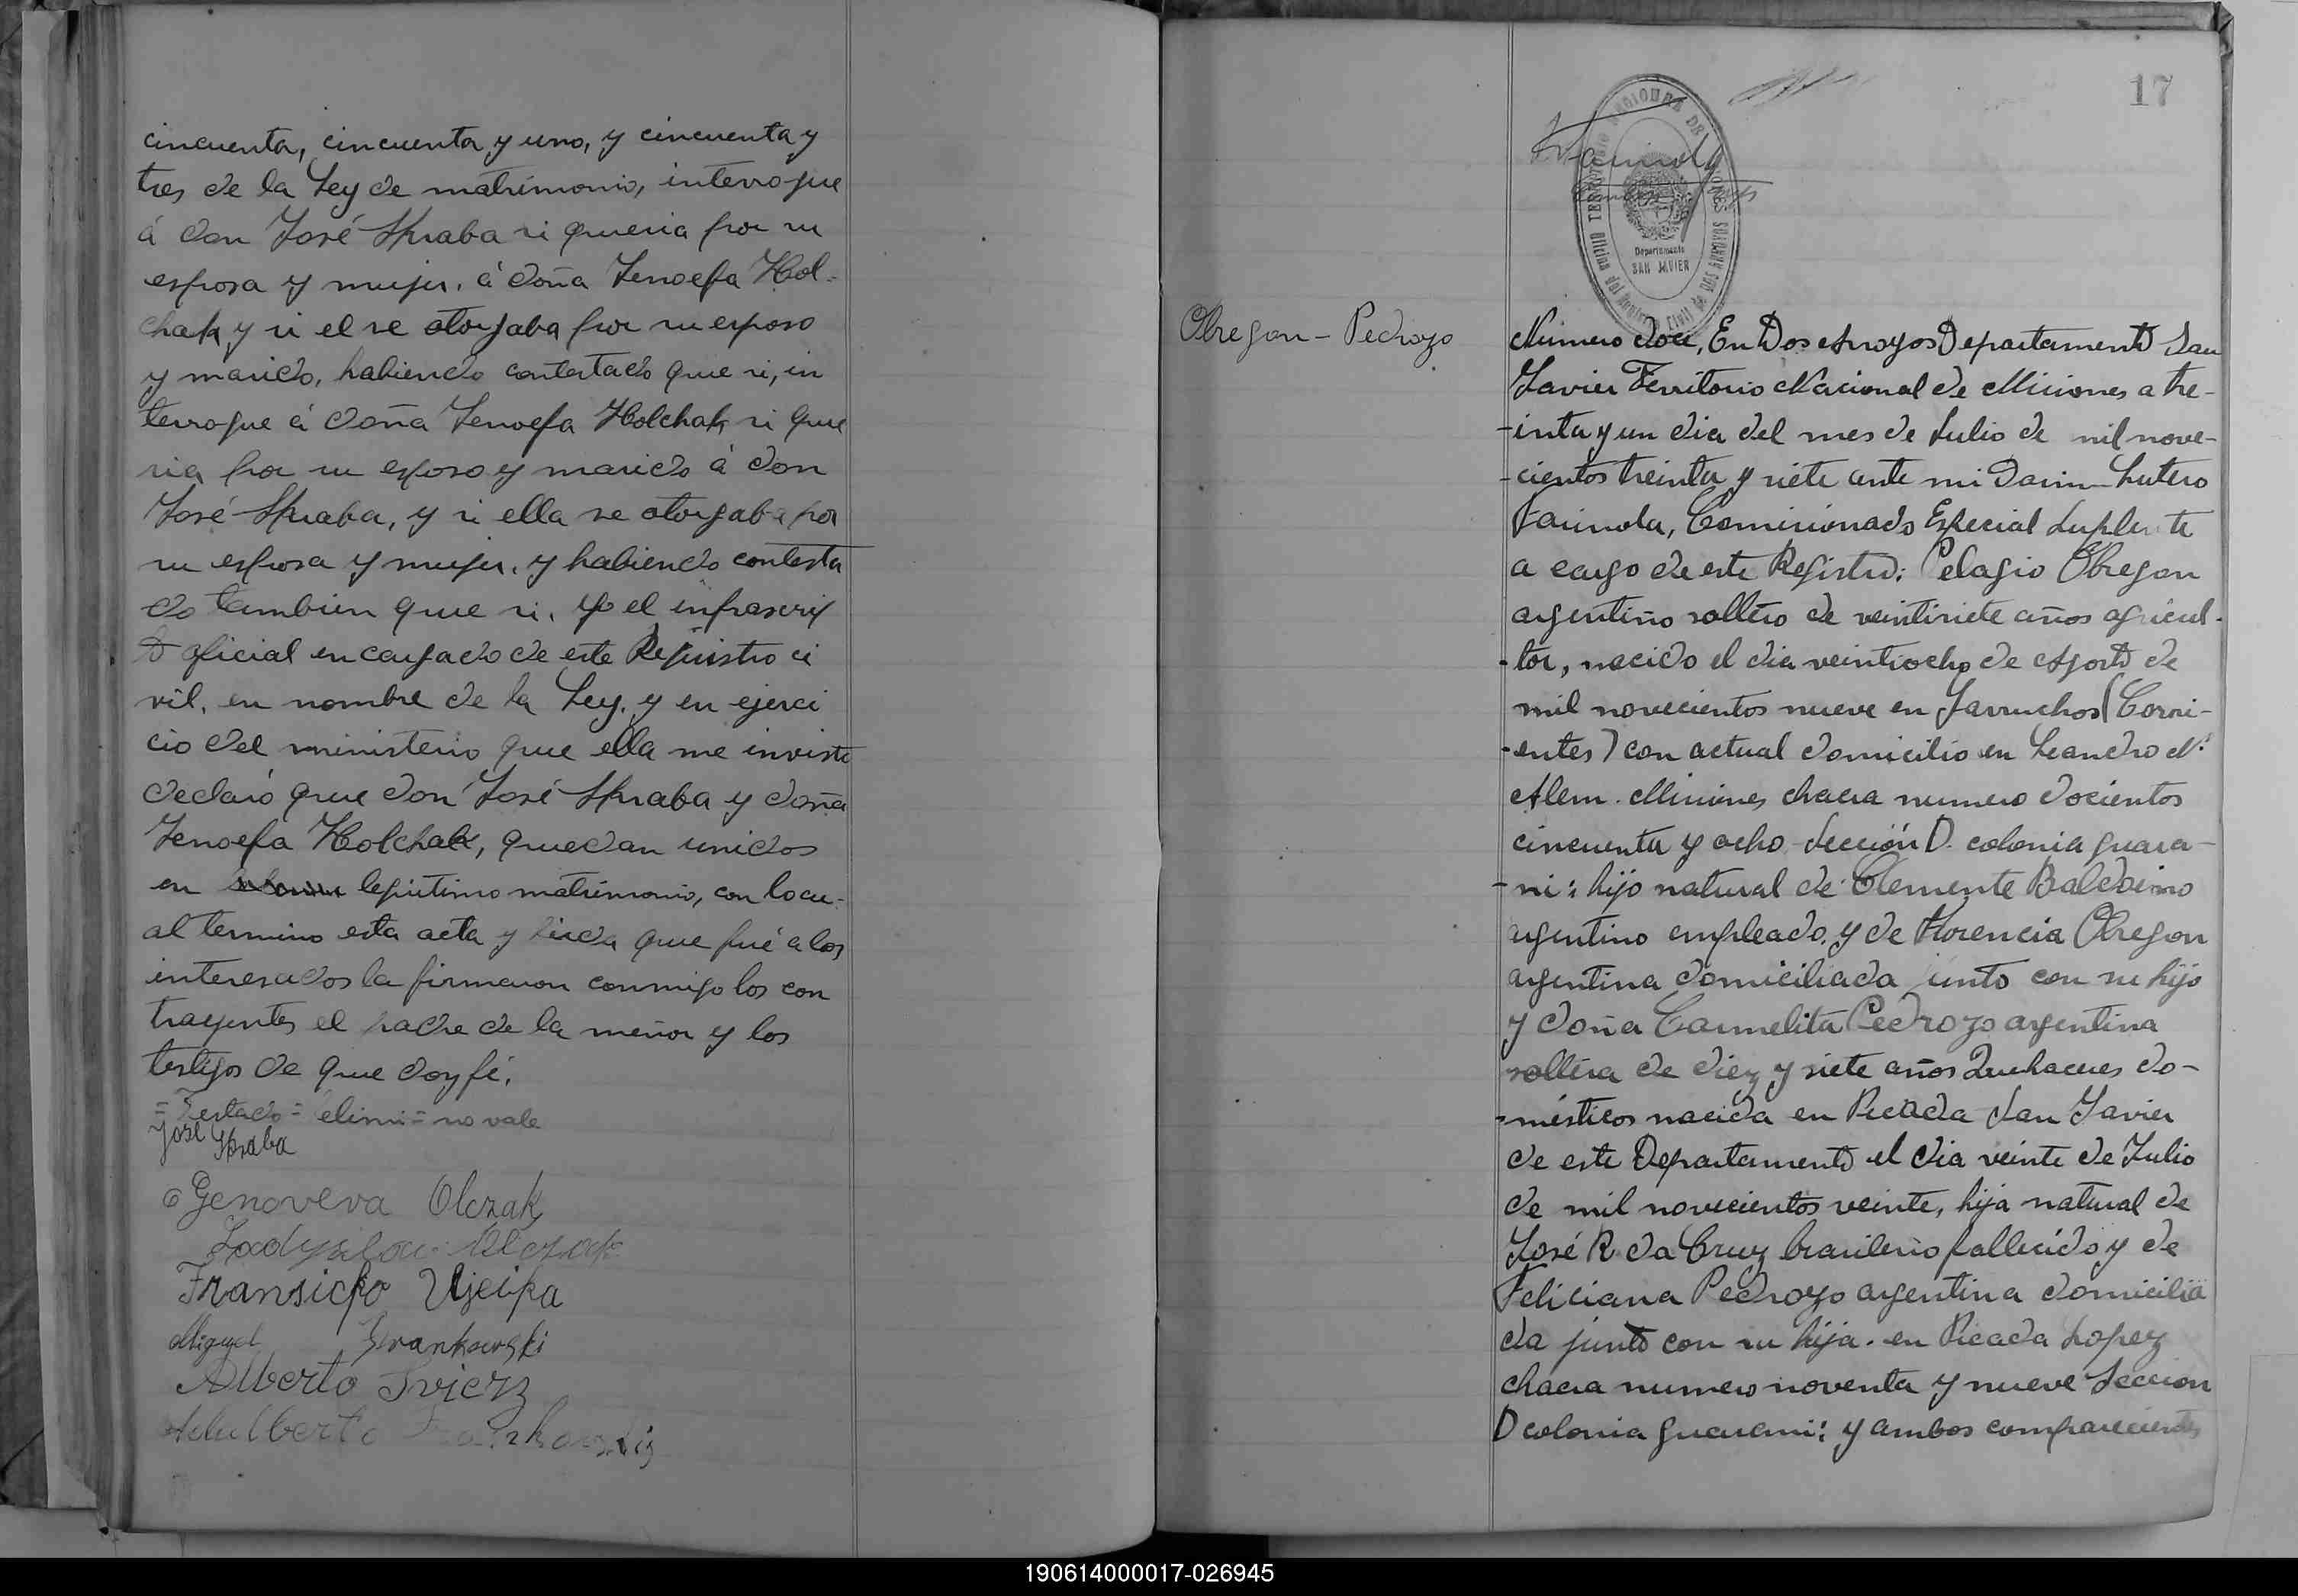 cincuenta, cincuenta y uno, y cincuenta y
tres de la Ley de matrimonio, interrogue
á don José Skraba si queria por su
esposa y mujer, á doña Jenoefa Hol-
chak y si el se otorgaba por su esposo
y marido, habiendo contestado que si, in
terrogue á doña Jenoefa Holchak si que
ria por su esposo y marido á don
José Skraba, y si ella se otorgaba por
su esposa y mujer, y habiendo contesta
do tambien que si. Yo el infrascrip
to oficial encargado de este Rejistro ci
vil, en nombre de la Ley, y en ejerci
cio del ministerio que ella me inviste
declaró que don José Skraba y doña
Jenoefa Holchak, quedan unidos
en lejitimo matrimonio, con lo cu-
al termino esta acta y leida que fué a los
interesados la firmaron conmigo los con
trayentes el padre de la menor y los
testigos de que doy fé.
= Testado = = no vale
José Skraba
Genoveva Olczak
Fransicko
Miguel Frankowski
Alberto Svierz
Adalberto
17
TERRITORIO NACIONAL DE MISIONES
Oficina del Registro Civil
Departamento
SAN JAVIER
Obregon - Pedrozo
Numero doce, En Dos Arroyos Departamento San
Javier Territorio Nacional de Misiones a tre-
-inta y un dia del mes de Julio de mil nove-
-cientos treinta y siete ante mi Darin Lutero
Farinola, Comisionado Especial Suplente
a cargo de este Registro: Pelagio Obregon
argentino soltero de veintisiete años agricul-
-tor, nacido el dia veintiocho de Agosto de
mil novecientos nueve en Garruchos (Corri-
-entes) con actual domicilio en Leandro N.
Alem. Misiones chacra numero docientos
cincuenta y ocho Sección D. colonia guara-
-ni: hijo natural de Clemente Baldoino
argentino empleado, y de Florencia Obregon
argentina domiciliada junto con su hijo
y doña Carmelita Pedrozo argentina
soltera de diez y siete años Quehaceres do-
-mésticos nacida en Picada San Javier
de este Departamento el dia veinte de Julio
de mil novecientos veinte, hija natural de
José R. da Cruz brasilero fallecido y de
Feliciana Pedrozo argentina domicilia
da junto con su hija. en Picada Lopez
chacra numero noventa y nueve Seccion
D colonia guarani: y ambos comparecientes
190614000017-026945